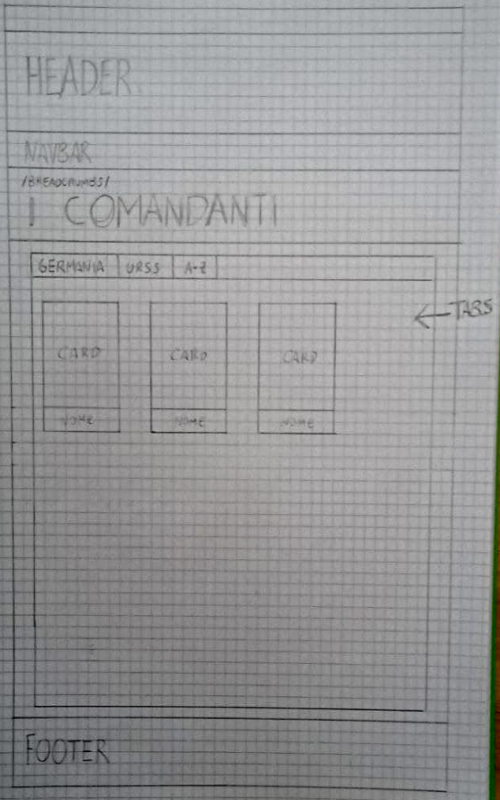 HEADER
NAVBAR
/BREADCRUMBS/
I COMANDANTI
GERMANIA URSS A-Z
← TABS
CARD CARD CARD
NOME NOME NOME
FOOTER